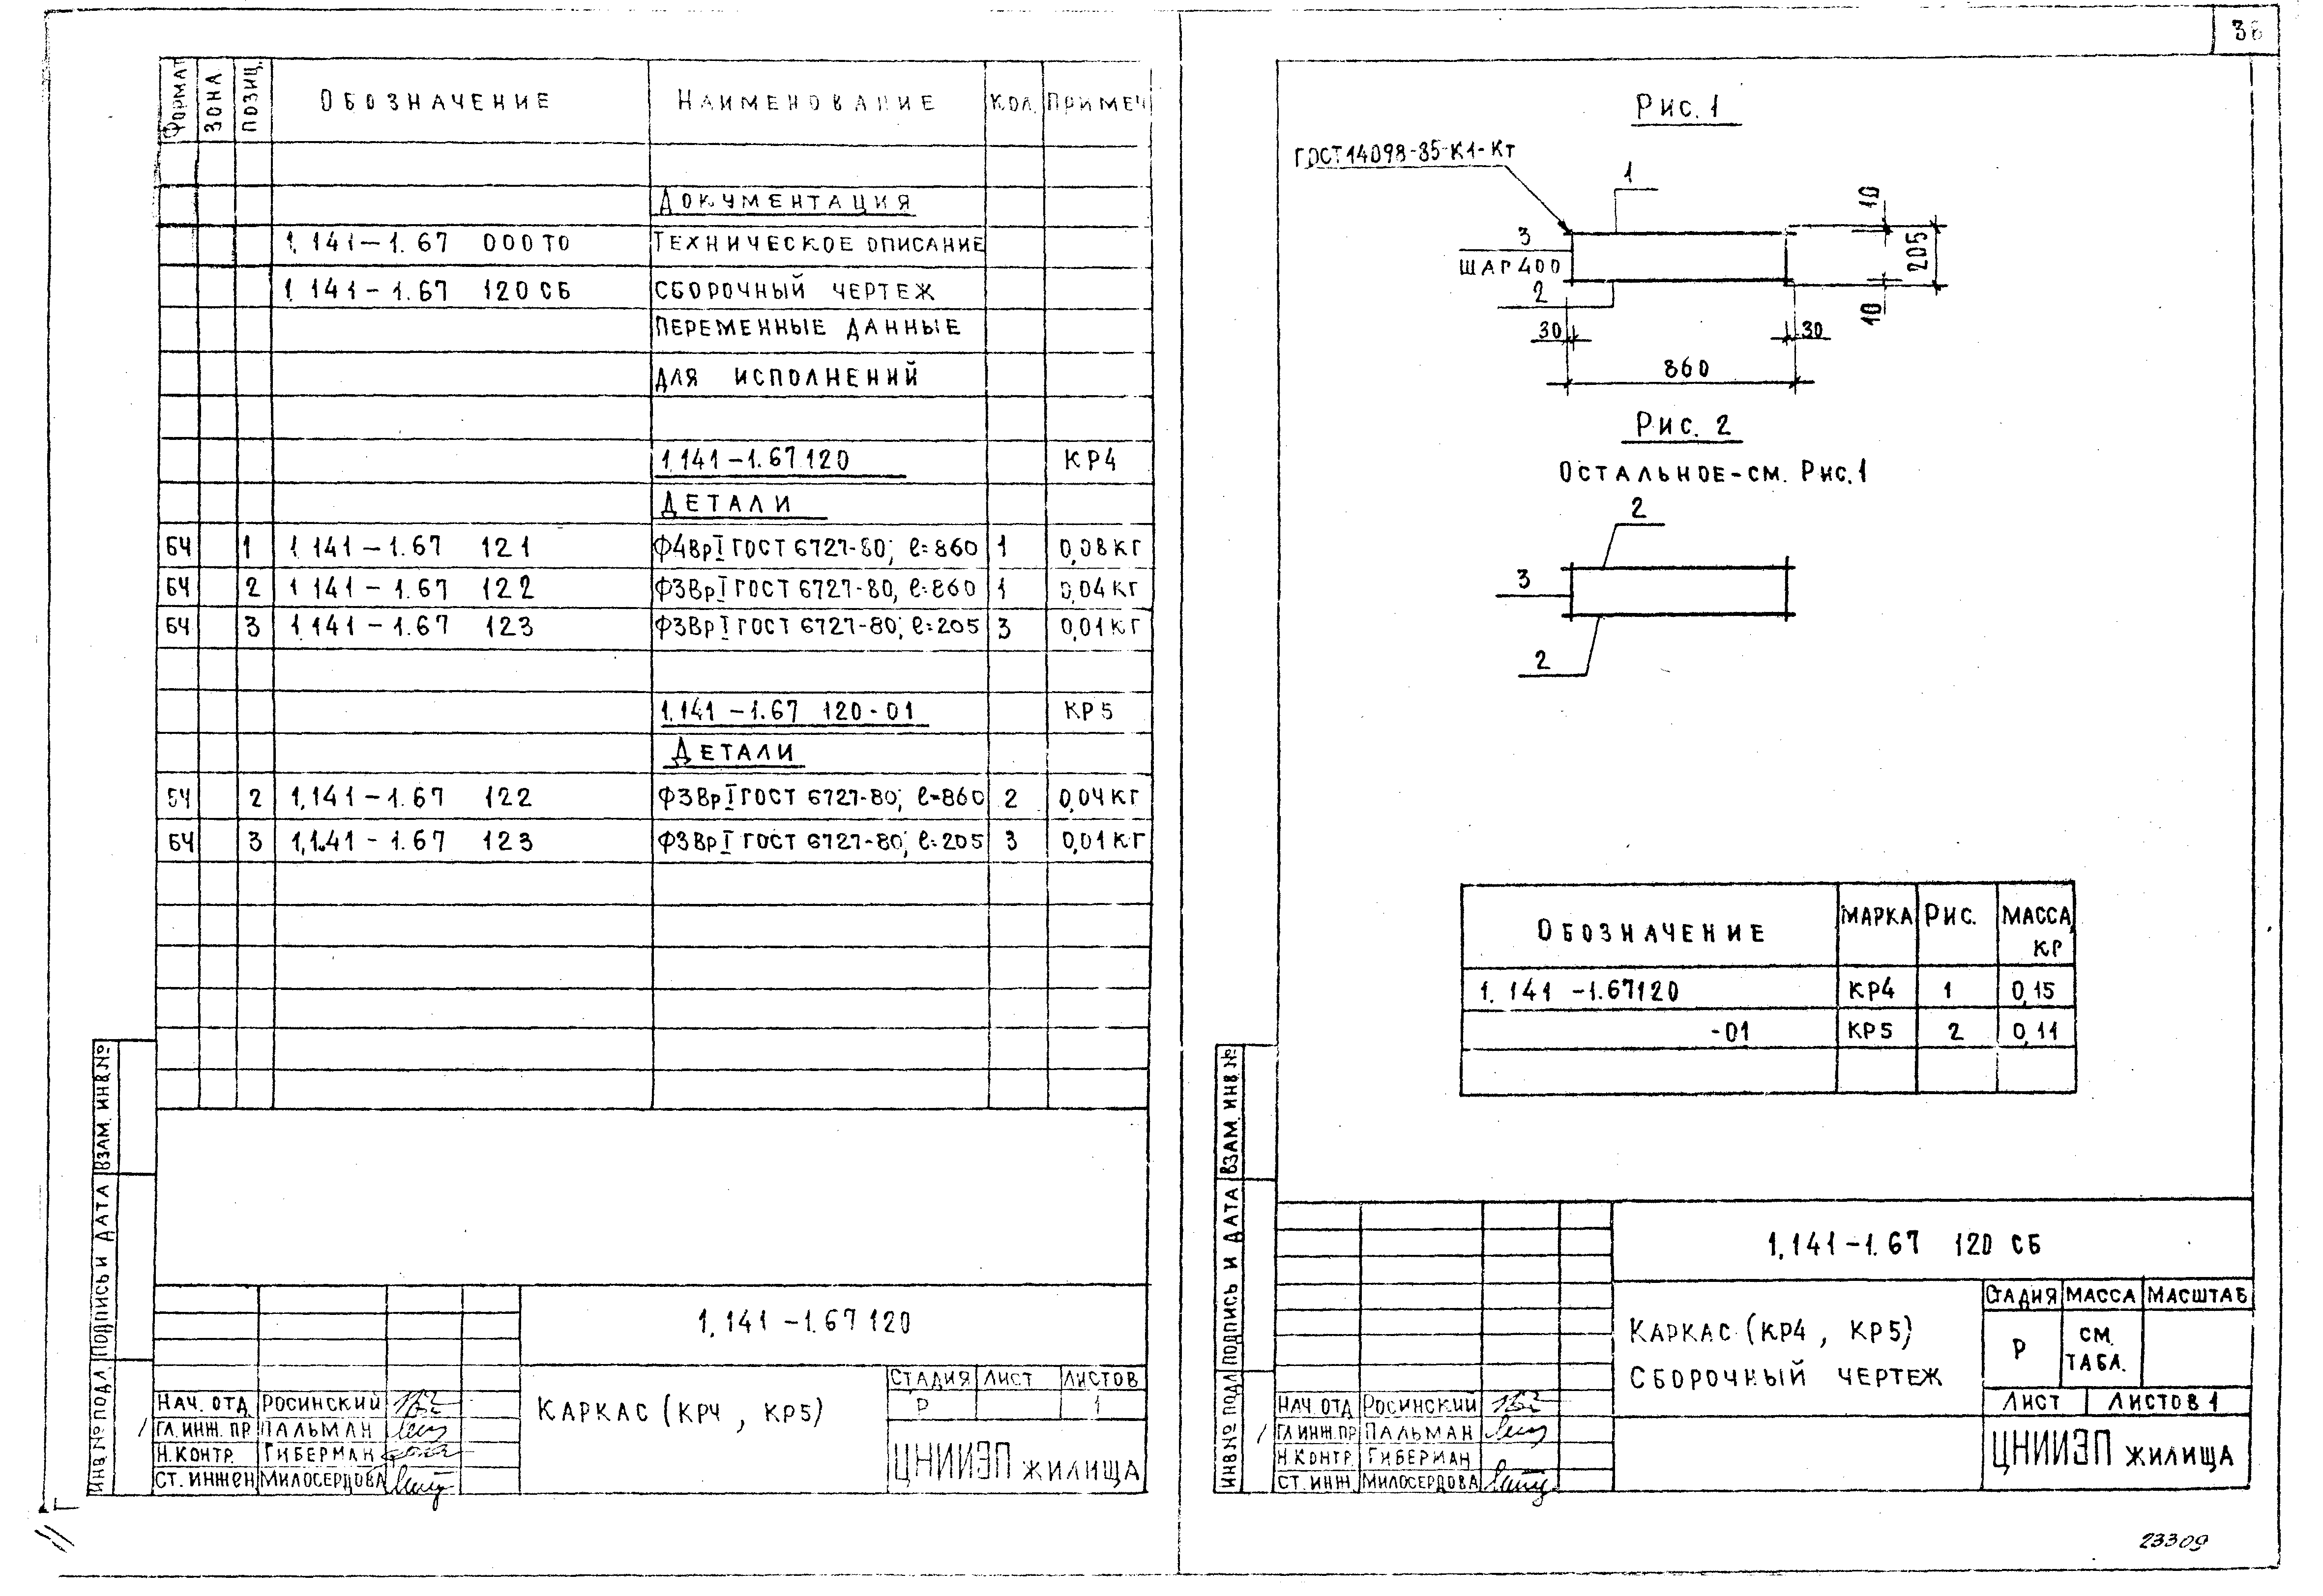 ФОРМАТ ЗОНА ПОЗИЦ. ОБОЗНАЧЕНИЕ НАИМЕНОВАНИЕ КОЛ. ПРИМЕЧ
ДОКУМЕНТАЦИЯ
1.141-1.67 000ТО ТЕХНИЧЕСКОЕ ОПИСАНИЕ
1.141-1.67 120СБ СБОРОЧНЫЙ ЧЕРТЕЖ
ПЕРЕМЕННЫЕ ДАННЫЕ
ДЛЯ ИСПОЛНЕНИЙ
1.141-1.67 120 КР4
ДЕТАЛИ
БЧ 1 1.141-1.67 121 Ф4ВрI ГОСТ 6727-80; ℓ=860 1 0,08 КГ
БЧ 2 1.141-1.67 122 Ф3ВрI ГОСТ 6727-80, ℓ=860 1 0,04 КГ
БЧ 3 1.141-1.67 123 Ф3ВрI ГОСТ 6727-80; ℓ=205 3 0,01 КГ
1.141-1.67 120-01 КР5
ДЕТАЛИ
БЧ 2 1.141-1.67 122 Ф3ВрI ГОСТ 6727-80; ℓ=860 2 0,04 КГ
БЧ 3 1.141-1.67 123 Ф3ВрI ГОСТ 6727-80; ℓ=205 3 0,01 КГ
ИНВ.№ ПОДЛ. ПОДПИСЬ И ДАТА ВЗАМ. ИНВ.№
1.141-1.67 120
НАЧ. ОТД РОСИНСКИЙ
ГЛ. ИНЖ. ПР ПАЛЬМАН
Н. КОНТР. ГИБЕРМАН
СТ. ИНЖЕН МИЛОСЕРДОВА
КАРКАС (КР4, КР5)
СТАДИЯ ЛИСТ ЛИСТОВ
Р 1
ЦНИИЭП ЖИЛИЩА
РИС. 1
ГОСТ 14098-85-К1-Кт
1
3
ШАГ 400
2
10
205
10
30
30
860
РИС. 2
ОСТАЛЬНОЕ-СМ. РИС. 1
2
3
2
ОБОЗНАЧЕНИЕ МАРКА РИС. МАССА, КГ
1.141-1.67 120 КР4 1 0,15
-01 КР5 2 0,11
ИНВ № ПОДЛ ПОДПИСЬ И ДАТА ВЗАМ. ИНВ №
1.141-1.67 120 СБ
НАЧ. ОТД РОСИНСКИЙ
ГЛ ИНЖ. ПР ПАЛЬМАН
Н. КОНТР. ГИБЕРМАН
СТ. ИНЖ. МИЛОСЕРДОВА
КАРКАС (КР4, КР5)
СБОРОЧНЫЙ ЧЕРТЕЖ
СТАДИЯ МАССА МАСШТАБ
Р СМ. ТАБЛ.
ЛИСТ ЛИСТОВ 1
ЦНИИЭП ЖИЛИЩА
23309